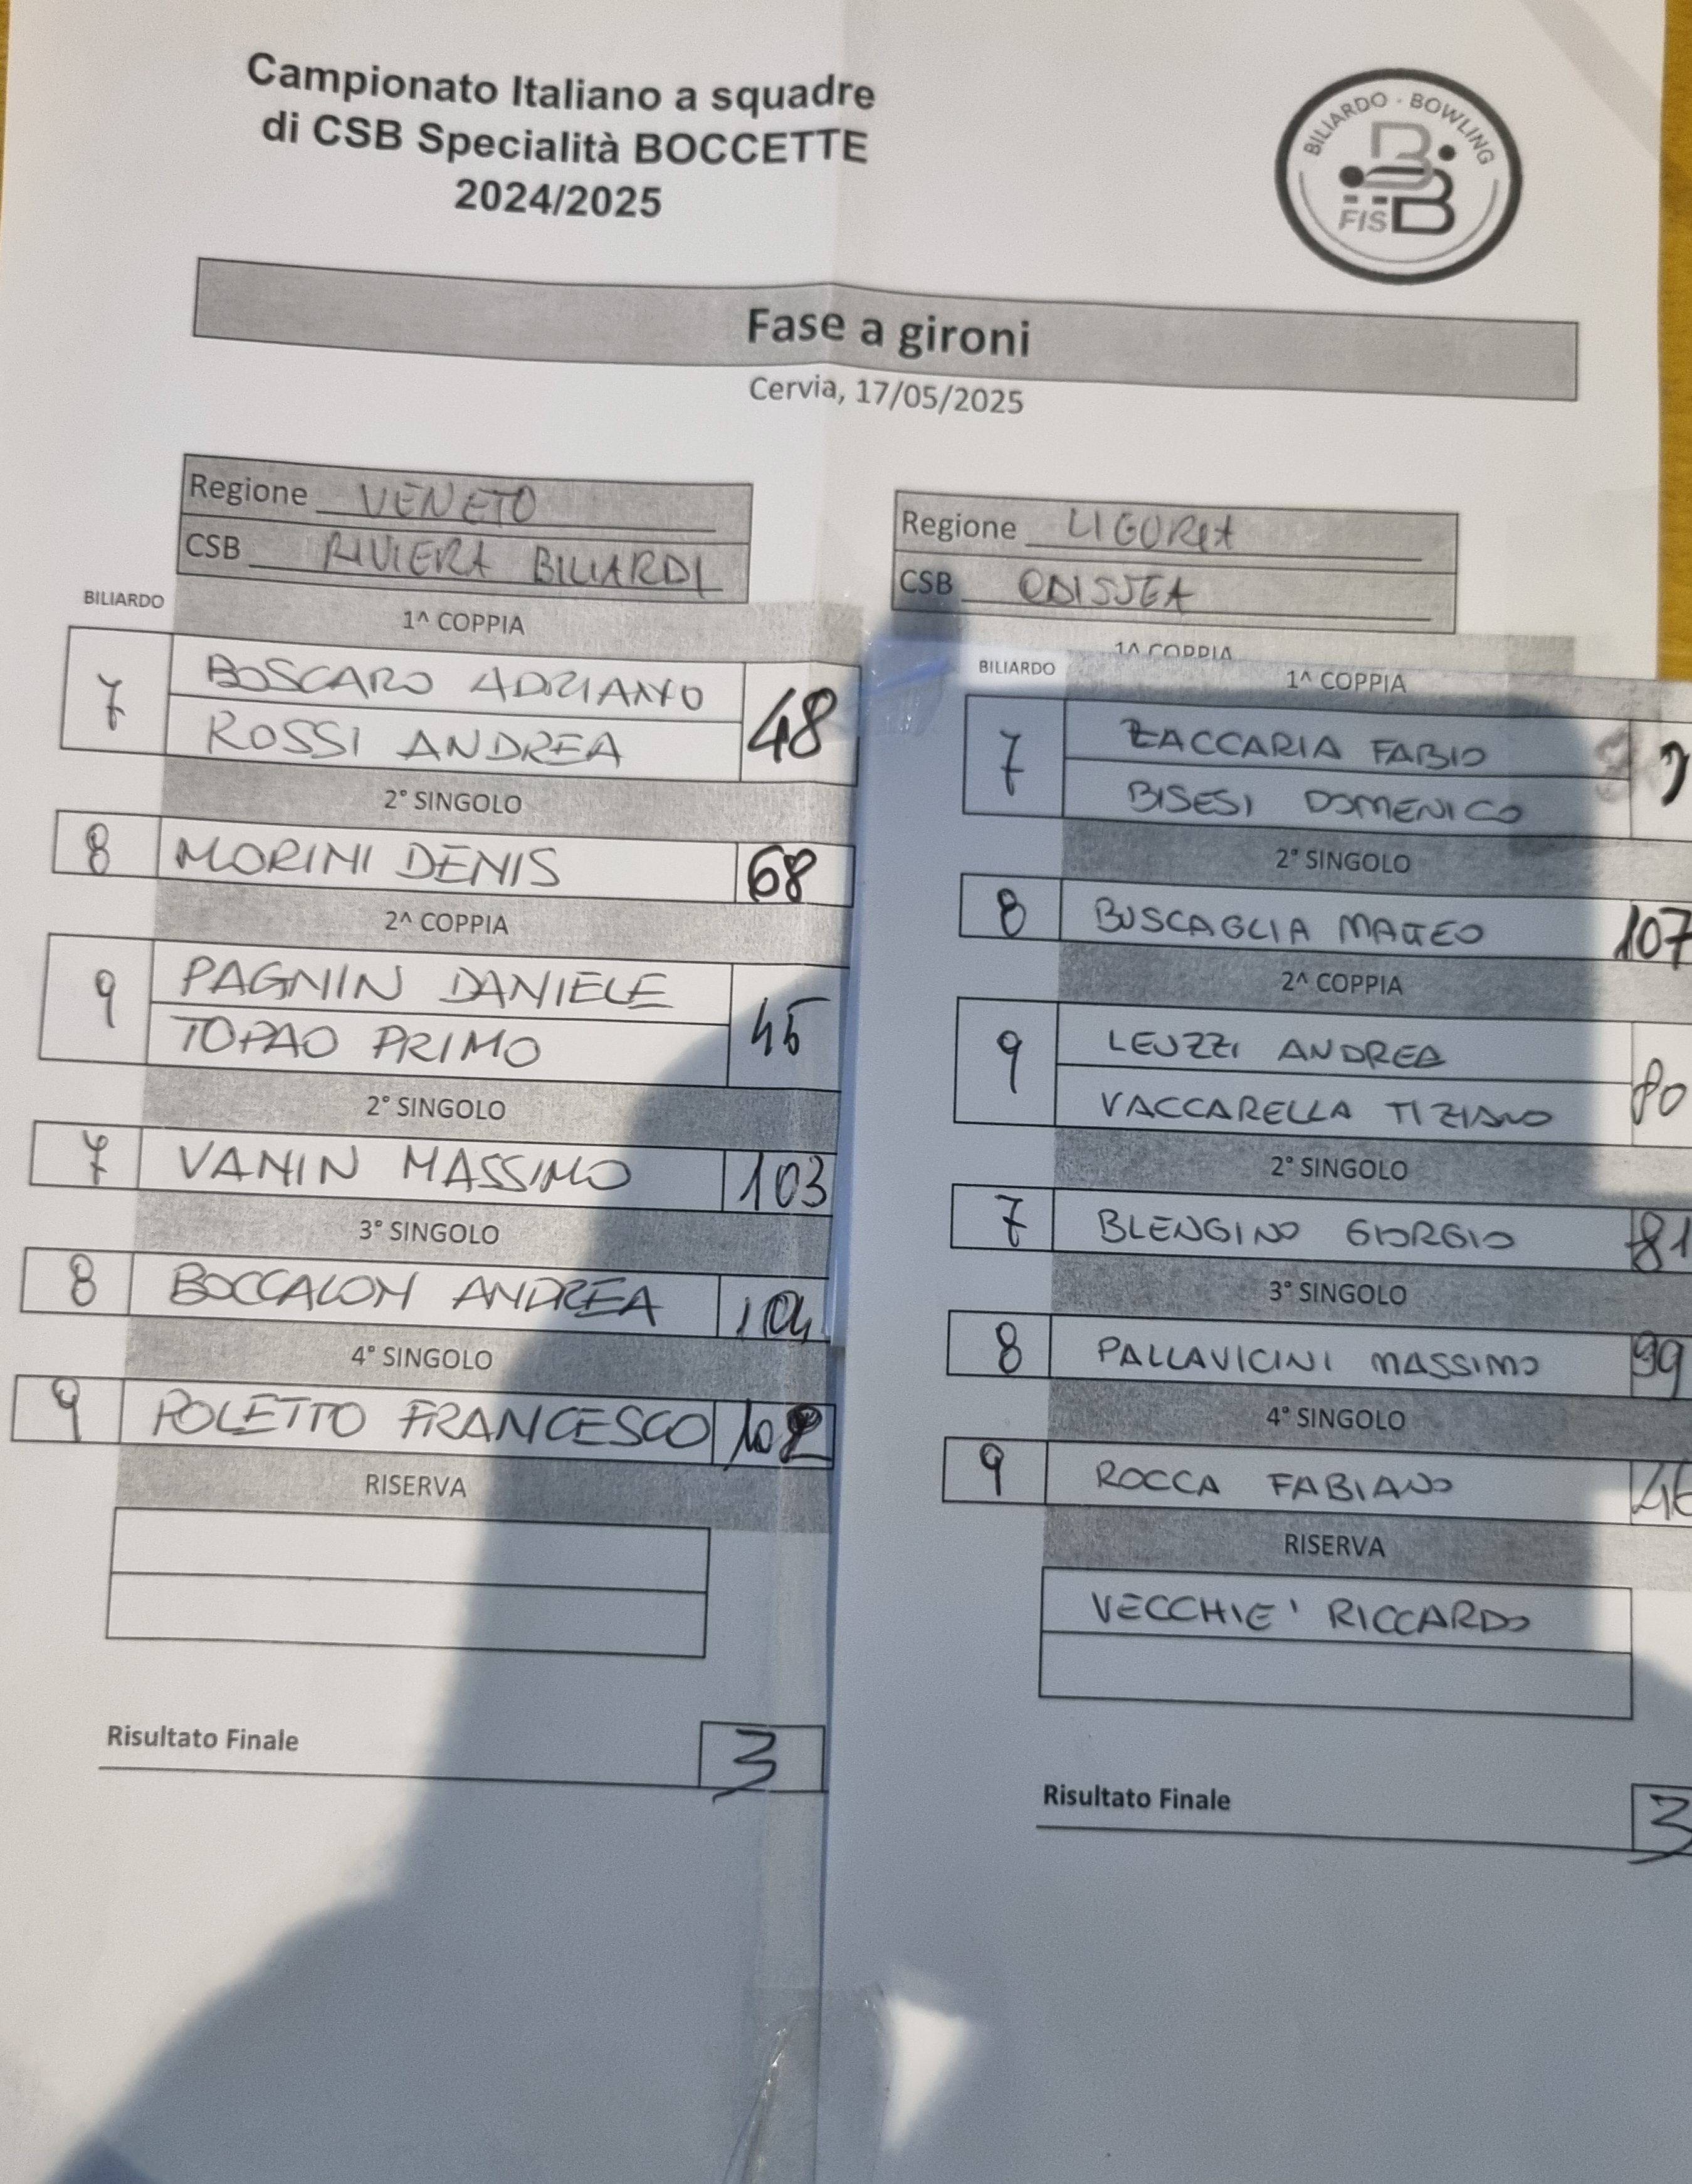 Campionato Italiano a squadre
di CSB Specialità BOCCETTE
2024/2025
BILIARDO · BOWLING
FISBB
Fase a gironi
Cervia, 17/05/2025
Regione VENETO
CSB RIVIERA BILIARDI
BILIARDO
1^ COPPIA
7 BOSCARO ADRIANO 48
ROSSI ANDREA
2° SINGOLO
8 MORINI DENIS 68
2^ COPPIA
9 PAGNIN DANIELE 45
TOPAO PRIMO
2° SINGOLO
7 VANIN MASSIMO 103
3° SINGOLO
8 BOCCALON ANDREA 104
4° SINGOLO
9 POLETTO FRANCESCO 102
RISERVA
Risultato Finale 3
Regione LIGURIA
CSB ODISSEA
1^ COPPIA
BILIARDO
1^ COPPIA
7 ZACCARIA FABIO
BISESI DOMENICO
2° SINGOLO
8 BUSCAGLIA MATTEO 107
2^ COPPIA
9 LEUZZI ANDREA 80
VACCARELLA TIZIANO
2° SINGOLO
7 BLENGINO GIORGIO 81
3° SINGOLO
8 PALLAVICINI MASSIMO 99
4° SINGOLO
9 ROCCA FABIANO 46
RISERVA
VECCHIE' RICCARDO
Risultato Finale 3